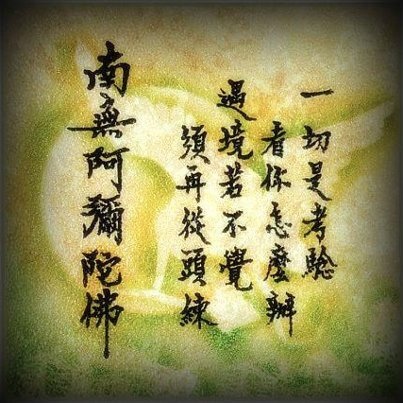 一切是考驗
看你怎麼辦
遇境若不覺
須再從頭練
南無阿彌陀佛